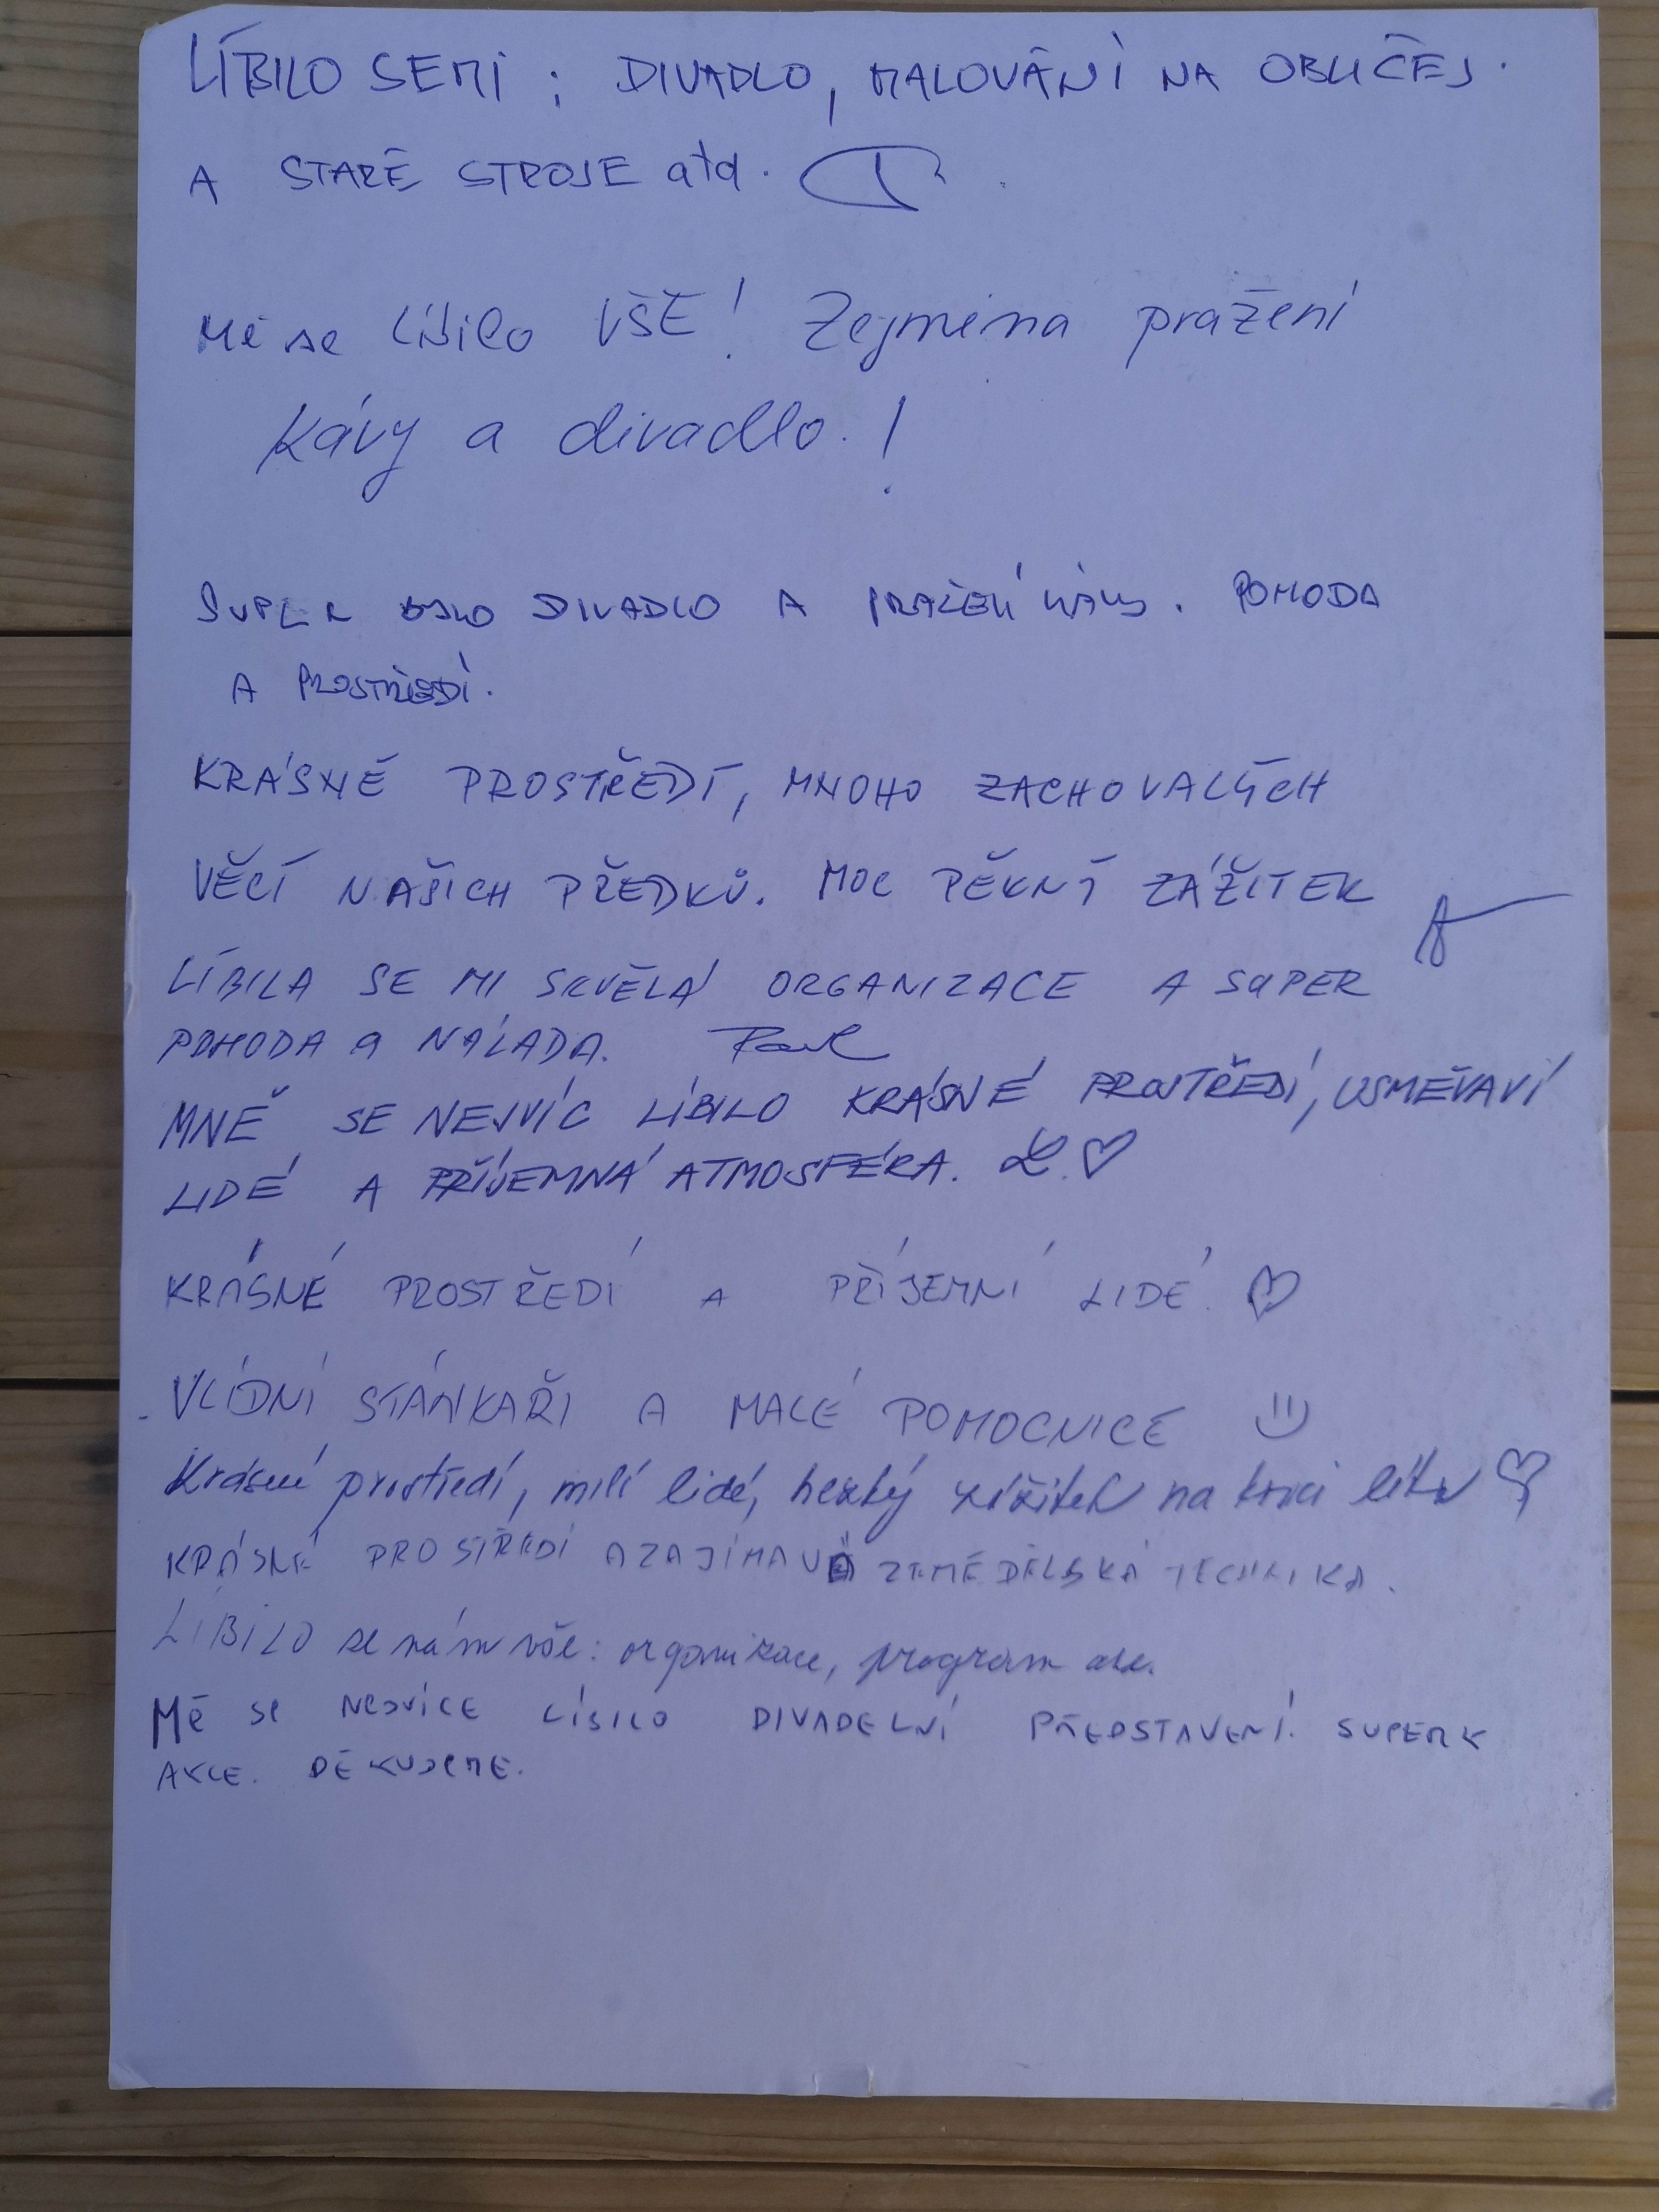 LÍBILO SE MI : DIVADLO, MALOVÁNÍ NA OBLIČEJ.
A STARÉ STROJE atd.
Mě se líbilo VŠE! Zejména pražení
Kávy a divadlo.!
SUPER BYLO DIVADLO A PRAŽENÍ KÁVY. POHODA
A PROSTŘEDÍ.
KRÁSNÉ PROSTŘEDÍ, MNOHO ZACHOVALÝCH
VĚCÍ NAŠICH PŘEDKŮ. MOC PĚKNÝ ZÁŽITEK
LÍBILA SE MI SKVĚLÁ ORGANIZACE A SUPER
POHODA a NÁLADA.
MNĚ SE NEJVÍC LÍBILO KRÁSNÉ PROSTŘEDÍ, USMĚVAVÍ
LIDÉ A PŘÍJEMNÁ ATMOSFÉRA. L. ♡
KRÁSNÉ PROSTŘEDÍ A PŘÍJEMNÍ LIDÉ. ♡
VLÍDNÍ STÁNKAŘI A MALÉ POMOCNICE
Krásné prostředí, milí lidé, hezký zážitek na konci léta ♡
KRÁSNÉ PROSTŘEDÍ A ZAJÍMAVÁ ZEMĚDĚLSKÁ TECHNIKA.
LÍBILO se nám vše: organizace, program
Mě se NEJVÍCE LÍBILO DIVADELNÍ PŘEDSTAVENÍ. SUPER
AKCE. DĚKUJEME.